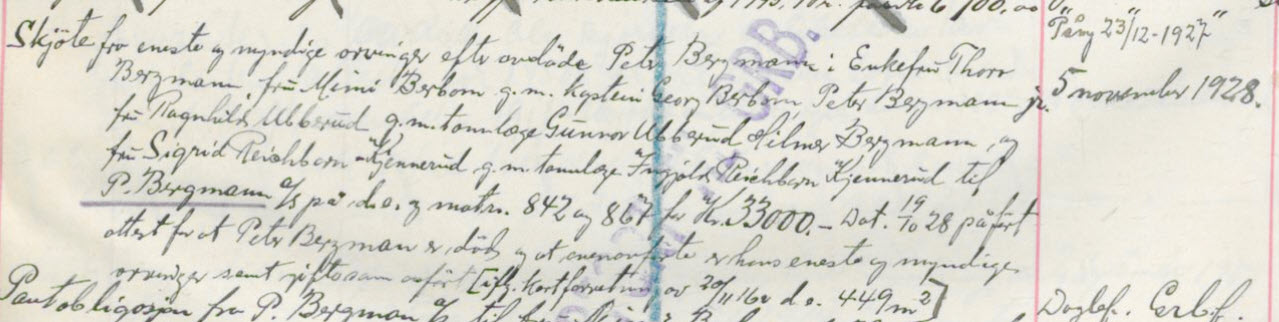 Påny 23/12-1927
Skjöte fra eneste og myndige arvinger efter avdöde Petr Bergmann: Enkefru Thora
Bergmann, fru Mimi Berbom g.m. kaptein Georg Berbom, Peter Bergmann jr. 5 november 1928.
fru Ragnhild Ubberud g.m. tannlæge Gunnar Ubberud Hilmar Bergmann, og
fru Sigrid Reichborn-Kjennerud g.m. tannlæge Ingjald Reichborn Kjennerud til
P. Bergmann A/S på d.e. og matr. 842 og 867 for Kr. 33000.- Dat. 19/10 28 påfört
attest for at Petr Bergman er död og at er hans eneste og myndige
arvinger samt gifte som anfört [iflg. Kartforretning av 20/11 16 d.e. 449 m2]
Pantobligasjon fra P. Bergman A/S til Dagbf. Erbf.